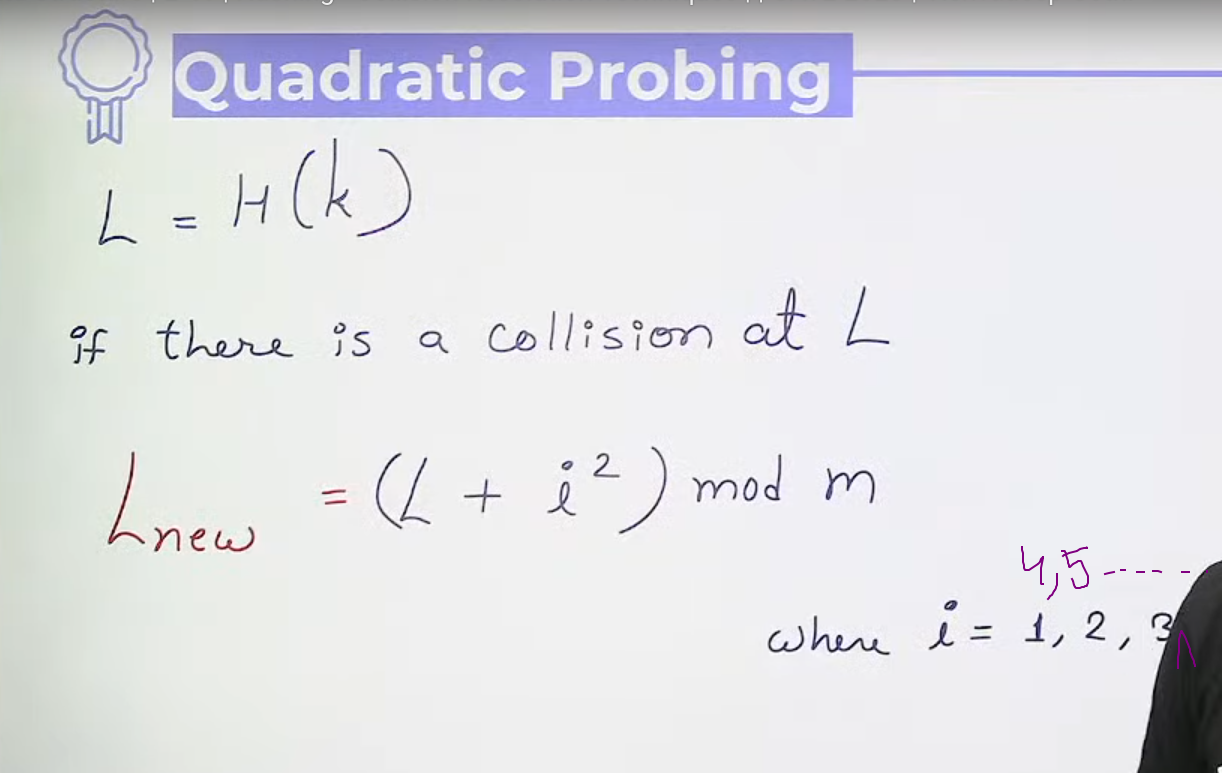 Quadratic Probing
L = H(k)
if there is a collision at L
Lnew = (L + i²) mod m
4,5-----
where i = 1, 2, 3